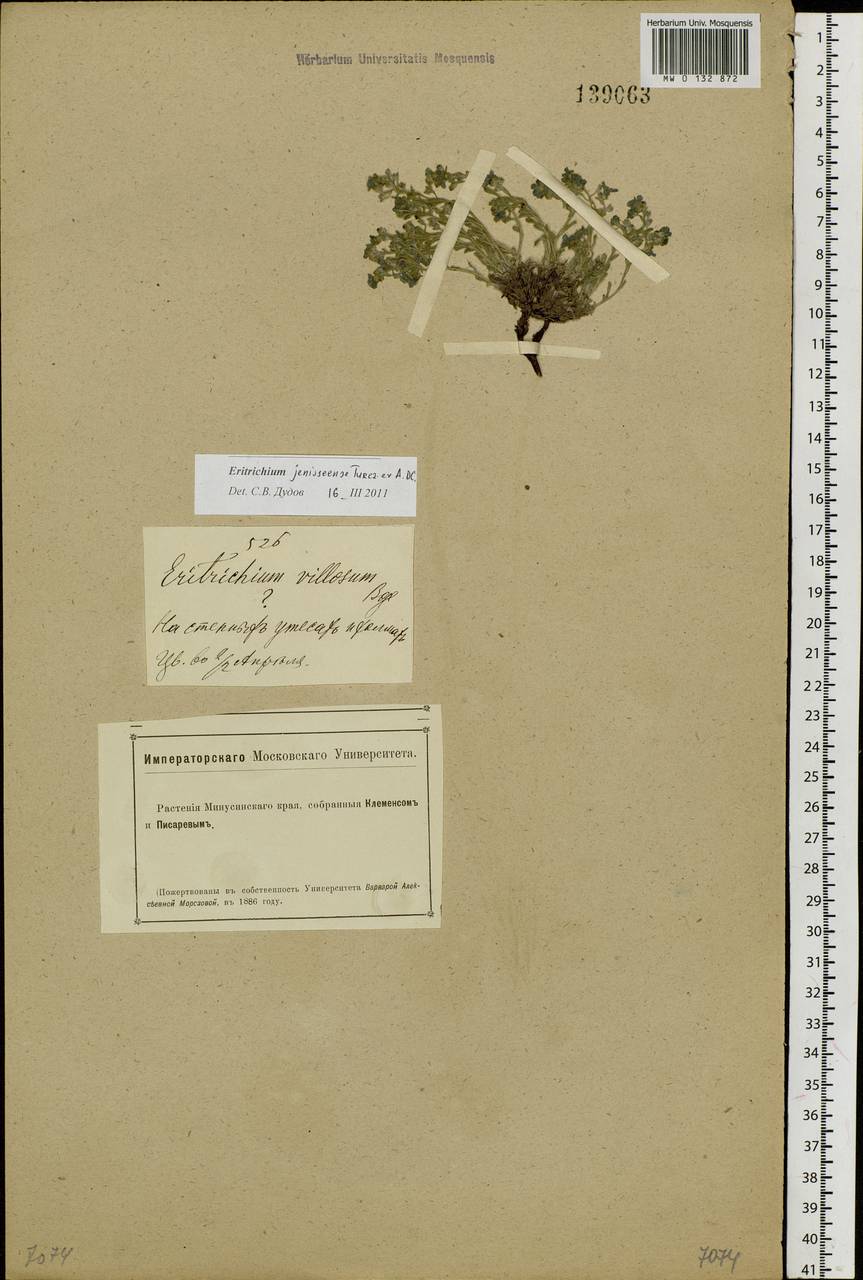 Herbarium Univ. Mosquensis
MW 0 132 872
Herbarium Universitatis Mosquensis
139063
Eritrichium jenisseense Turcz. ex A. DC.
Det. С.В. Дудов 16 III 2011
526
Eritrichium villosum
?
Bge
На степныхъ утесахъ и холмахъ
Цв. во 1/2 Апрѣля.
Императорскаго Московскаго Университета.
Растенія Минусинскаго края, собранныя Клеменсомъ
и Писаревымъ.
(Пожертвованы въ собственность Университета Варварой Алек-
сѣевной Морозовой, въ 1886 году.
7074
7074
1
2
3
4
5
6
7
8
9
10
11
12
13
14
15
16
17
18
19
20
21
22
23
24
25
26
27
28
29
30
31
32
33
34
35
36
37
38
39
40
41